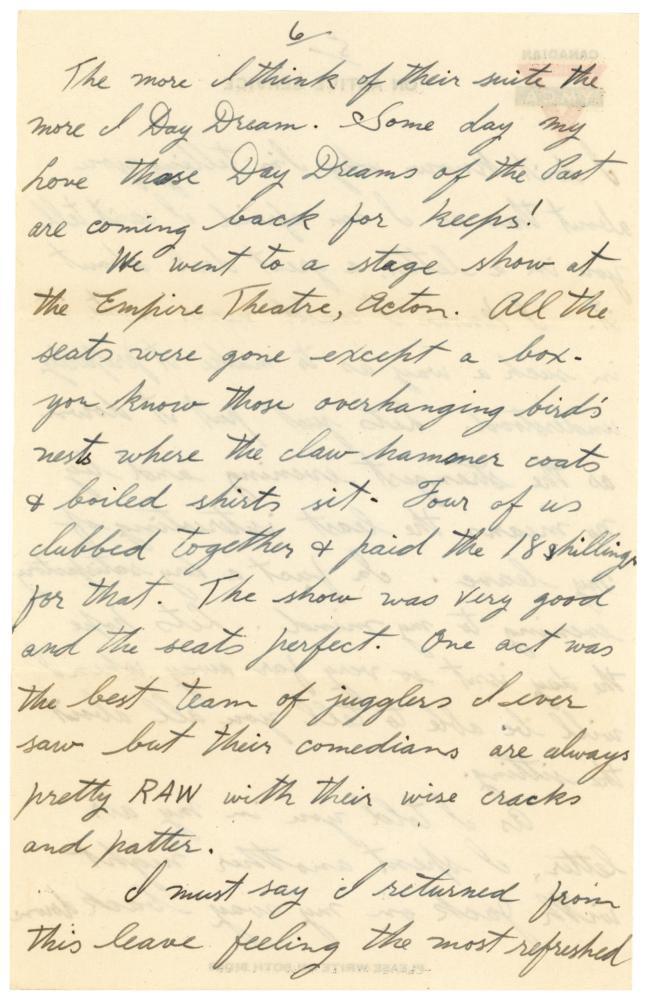 6
The more I think of their suite the
more I Day Dream. Some day my
Love those Day Dreams of the Past
are coming back for keeps!
We went to a stage show at
the Empire Theatre, Acton. All the
seats were gone except a box-
you know those overhanging bird's
nests where the claw hammer coats
& boiled shirts sit- Four of us
clubbed together & paid the 18 shillings
for that. The show was very good
and the seats perfect. One act was
the best team of jugglers I ever
saw but their comedians are always
pretty RAW with their wise cracks
and patter.
I must say I returned from
this leave feeling the most refreshed